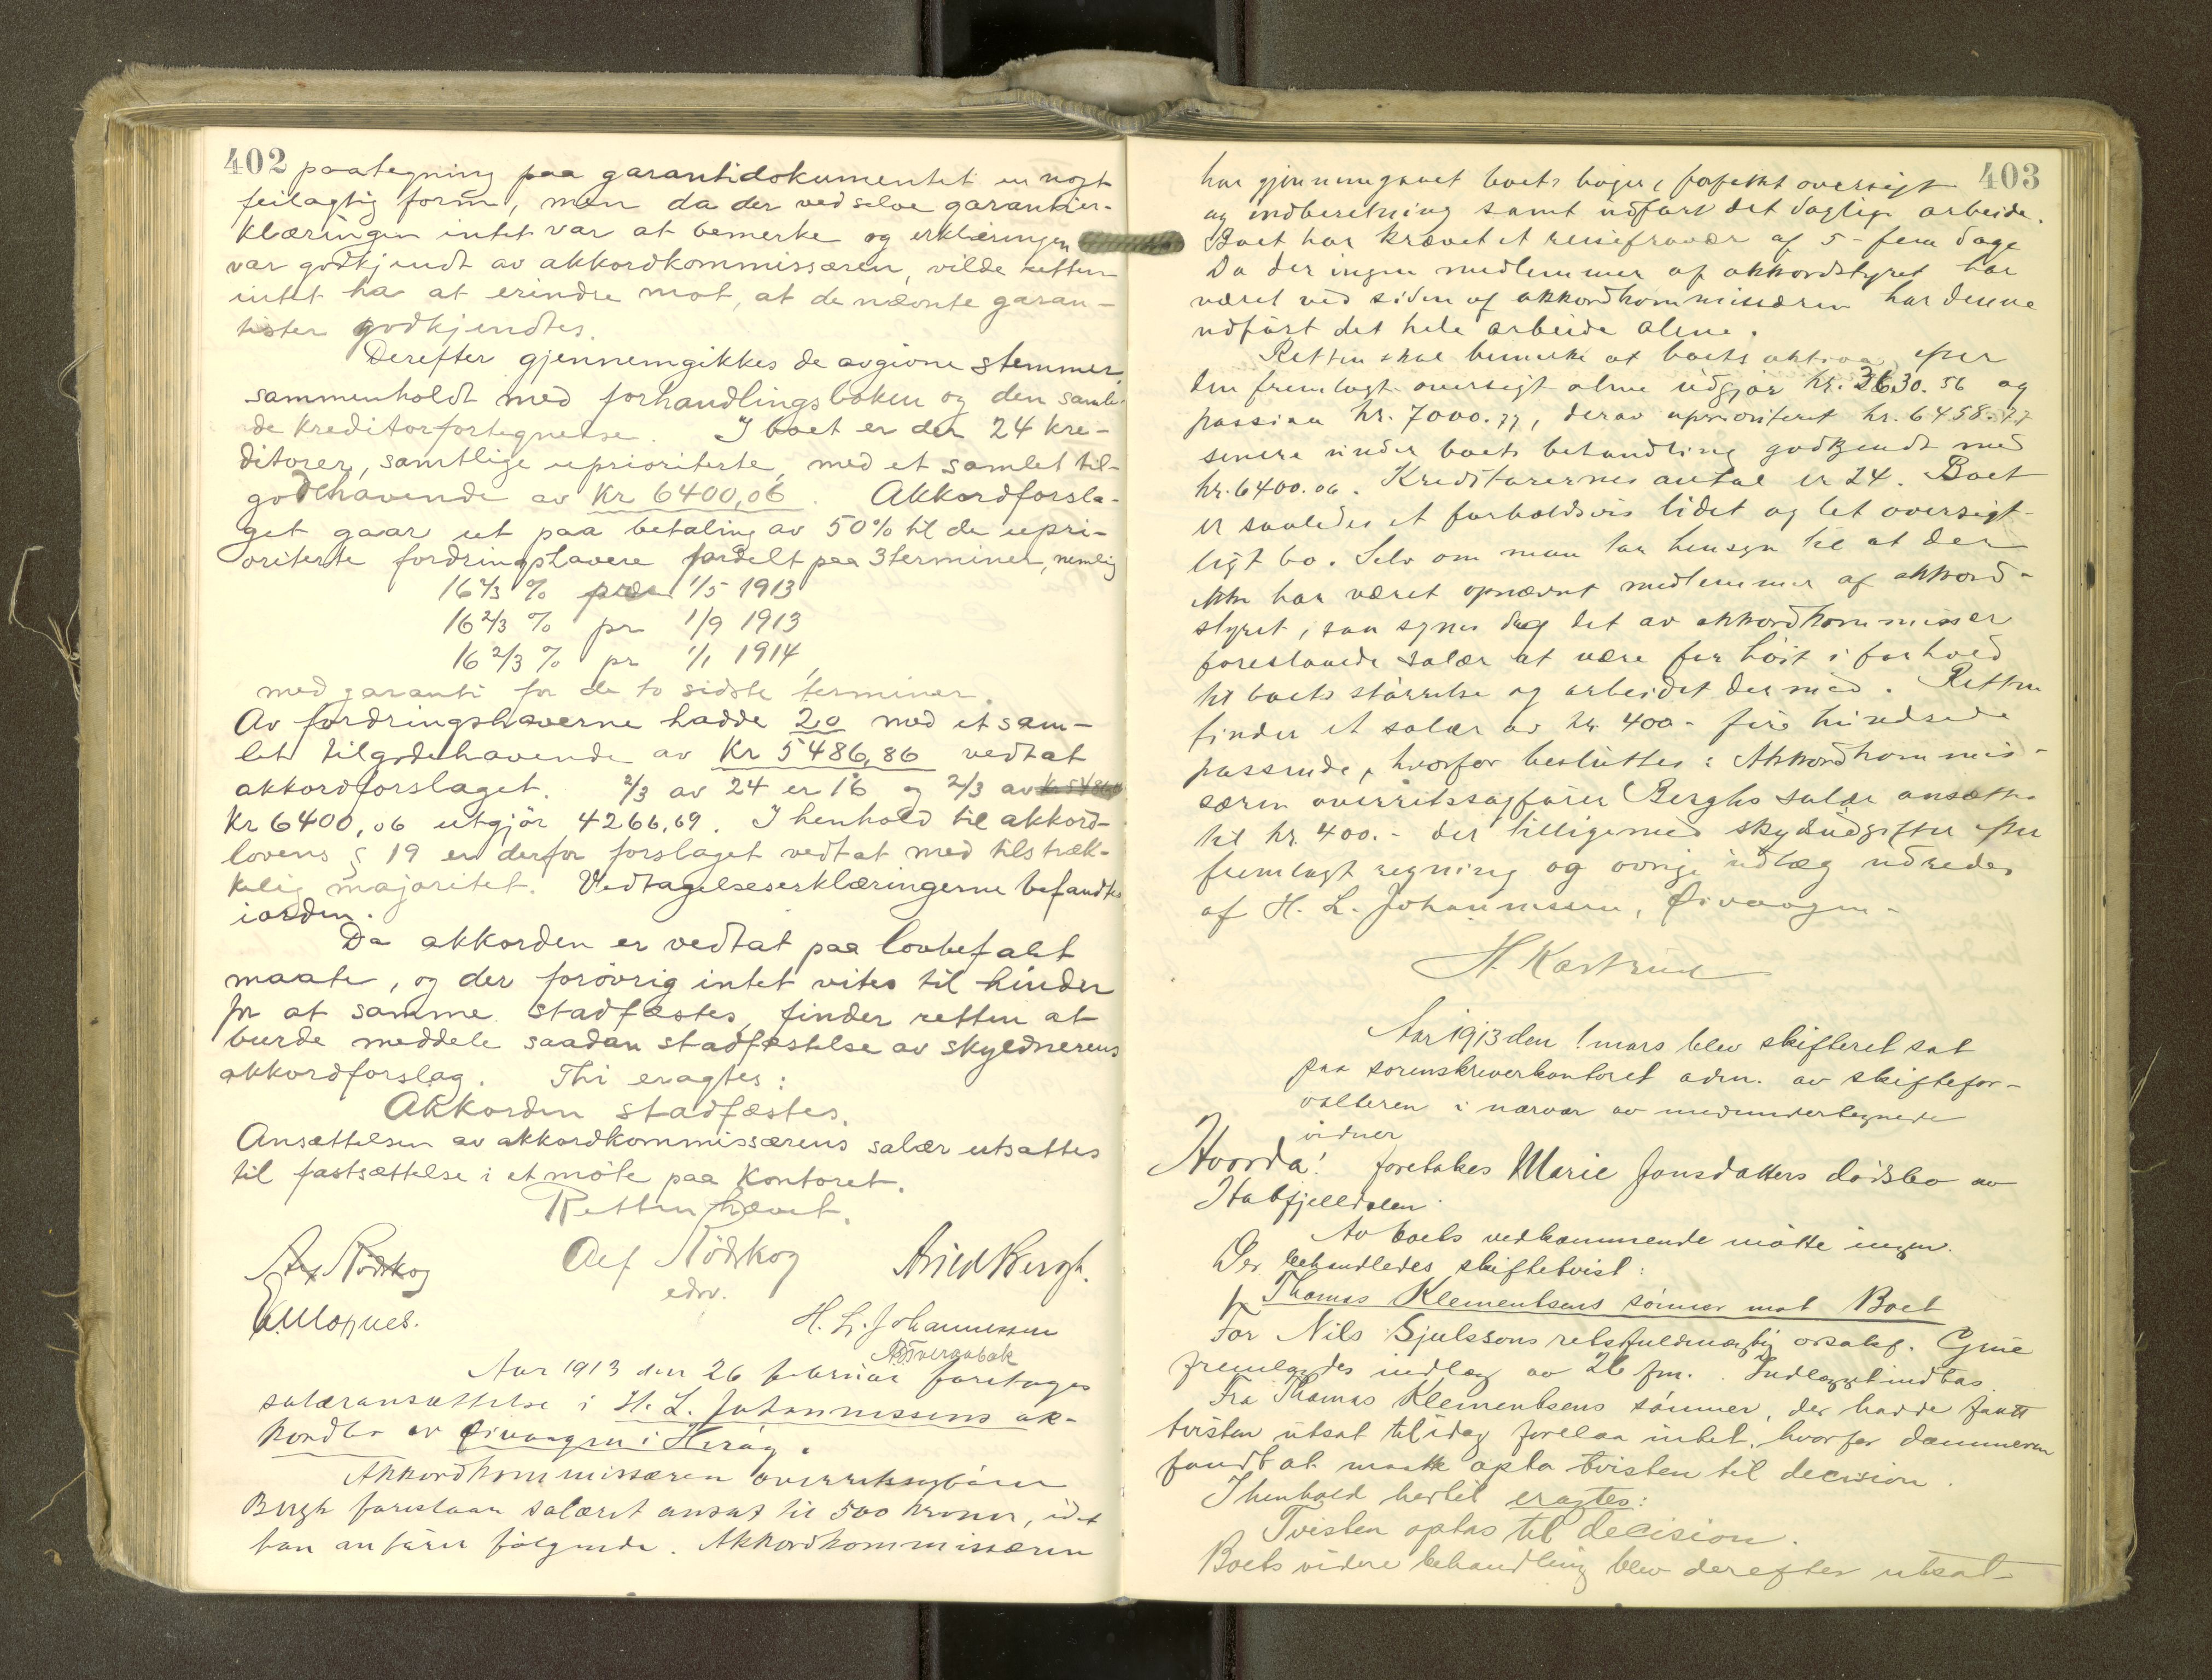 402 paategning paa garantidokumentet en nogt
feilagtig form, men da der ved selve garantier-
klæringen intet var at bemerke og erklæringen
var godkjendt av akkordkommissæren, vilde retten
intet ha at erindre mot, at de nævnte garan-
tister godkjendtes.
Derefter gjennemgikkes de avgivne stemmer,
sammenholdt med forhandlingsboken og den samle-
de kreditorfortegnelse. I boet er der 24 kre-
ditorer, samtlige uprioriterte, med et samlet til-
godehavende av Kr 6400,06. Akkordforsla-
get gaar ut paa betaling av 50% til de upri-
oriterte fordringshavere fordelt paa 3 terminer, nemlig
16 2/3 % pr 1/5 1913
16 2/3 % pr 1/9 1913
16 2/3 % pr 1/1 1914,
med garanti for de to sidste terminer.
Av fordringshaverne hadde 20 med et sam-
let tilgodehavende av Kr 5486,86 vedtat
akkordforslaget. 2/3 av 24 er 16 og 2/3 av
Kr 6400,06 utgjör 4266,69. I henhold til akkord-
lovens § 19 er derfor forslaget vedtat med tilstræk-
kelig majoritet. Vedtagelseserklæringerne befandtes
iorden.
Da akkorden er vedtat paa lovbefalt
maate, og der forövrig intet vites til hinder
for at samme stadfæstes, finder retten at
burde meddele saadan stadfæstelse av skyldnerens
akkordforslag. Thi eragtes:
Akkorden stadfæstes.
Ansættelsen av akkordkommissærens salær utsattes
til fastsættelse i et möte paa Kontoret.
Retten hævet.
Alf Nödskog Alf Nödskog Arild Bergh.
edv.
H. L. Johannessen
Aar 1913 den 26 februar foretages
salæransættelse i H. L. Johannessens ak-
kordbo av Öivaagen i Heröy.
Akkordkommissæren overretssagförer
Bergh foreslaar salæret ansat til 500 kroner, idet
han anförer fölgende. Akkordkommissæren
403
har gjennemgaaet boets böger, forfattet oversigt
og indberetning samt udfört det daglige arbeide.
Boet har krævet et reisefravær af 5 - fem dage
Da der ingen medlemmer af akkordstyret har
været ved siden af akkordkommissæren har denne
udfört det hele arbeide alene.
Retten skal bemerke at boets aktiva efter
den fremlagt oversigt alene udgjör kr. 3630.56 og
passiva kr. 7000.77, derav uprioriteret kr. 6458.77
senere under boets behandling godkjendt med
kr. 6400.06. Kreditorernes antal er 24. Boet
er saaledes et forholdsvis lidet og let oversigt-
ligt bo. Selv om man tar hensyn til at der
ikke har været opnævnt medlemmer af akkord-
styret, saa synes dog det av akkordkommissær
foreslaaede salær at være for höit i forhold
til boets störrelse og arbeidet dermed. Retten
finder et salær av kr. 400 - fire hundrede
passende, hvorfor besluttes: Akkordkommis-
særen overretssagförer Berghs salær ansættes
til kr. 400.- der tilligemed skydsudgifter efter
fremlagt regning og övrige udlæg udredes
af H. L. Johannessen, Öivaagen -
H. Kastrud
Aar 1913 den 1 mars blev skifteret sat
paa sorenskriverkontoret adm. av skiftefor-
valteren i nærvær av medundertegnede
vidner
Hvorda! foretakes Marie Jonsdatters dödsbo av
Hatfjelldalen.
Av boets vedkommende mötte ingen.
Der behandledes skiftetvist:
Thomas Klementsens sönner mot Boet
For Nils Sjulssons retsfuldmægtig orsakf. Grue
fremlagdes indlæg av 26 f.m. Indlægget indtas
Fra Thomas Klementsens sönner, der hadde faatt
tvisten utsat til idag forelaa intet, hvorfor dommeren
fandt at maatte opta tvisten til decision.
I henhold hertil eragtes:
Tvisten optas til decision.
Boets videre behandling blev derefter utsat